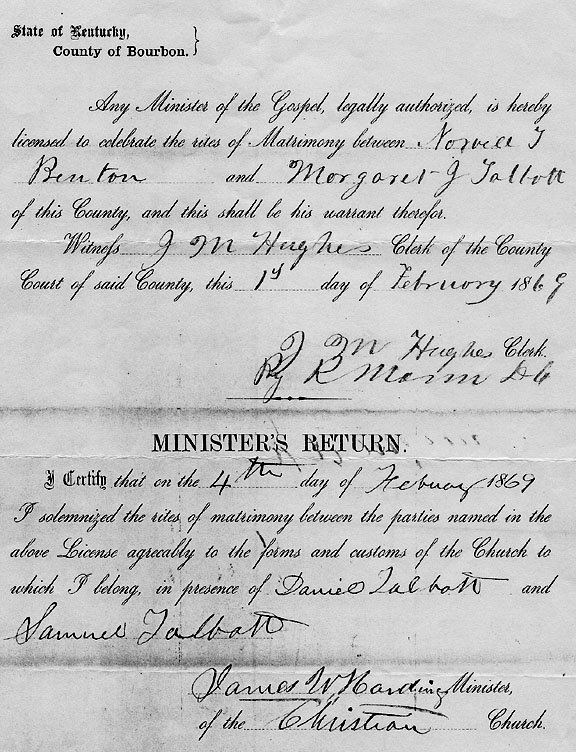 State of Kentucky, }
County of Bourbon.
Any Minister of the Gospel, legally authorized, is hereby
licensed to celebrate the rites of Matrimony between Norvell T
Benton and Margaret J Talbott
of this County, and this shall be his warrant therefor.
Witness J M Hughes Clerk of the County
Court of said County, this 1st day of February 1869
J M Hughes Clerk.
By R DC
MINISTER'S RETURN.
I Certify that on the 4th day of Febuary 1869
I solemnized the rites of matrimony between the parties named in the
above License agreeably to the forms and customs of the Church to
which I belong, in presence of Daniel Talbott and
Samuel Talbott
James W Harding Minister,
of the Christian Church.